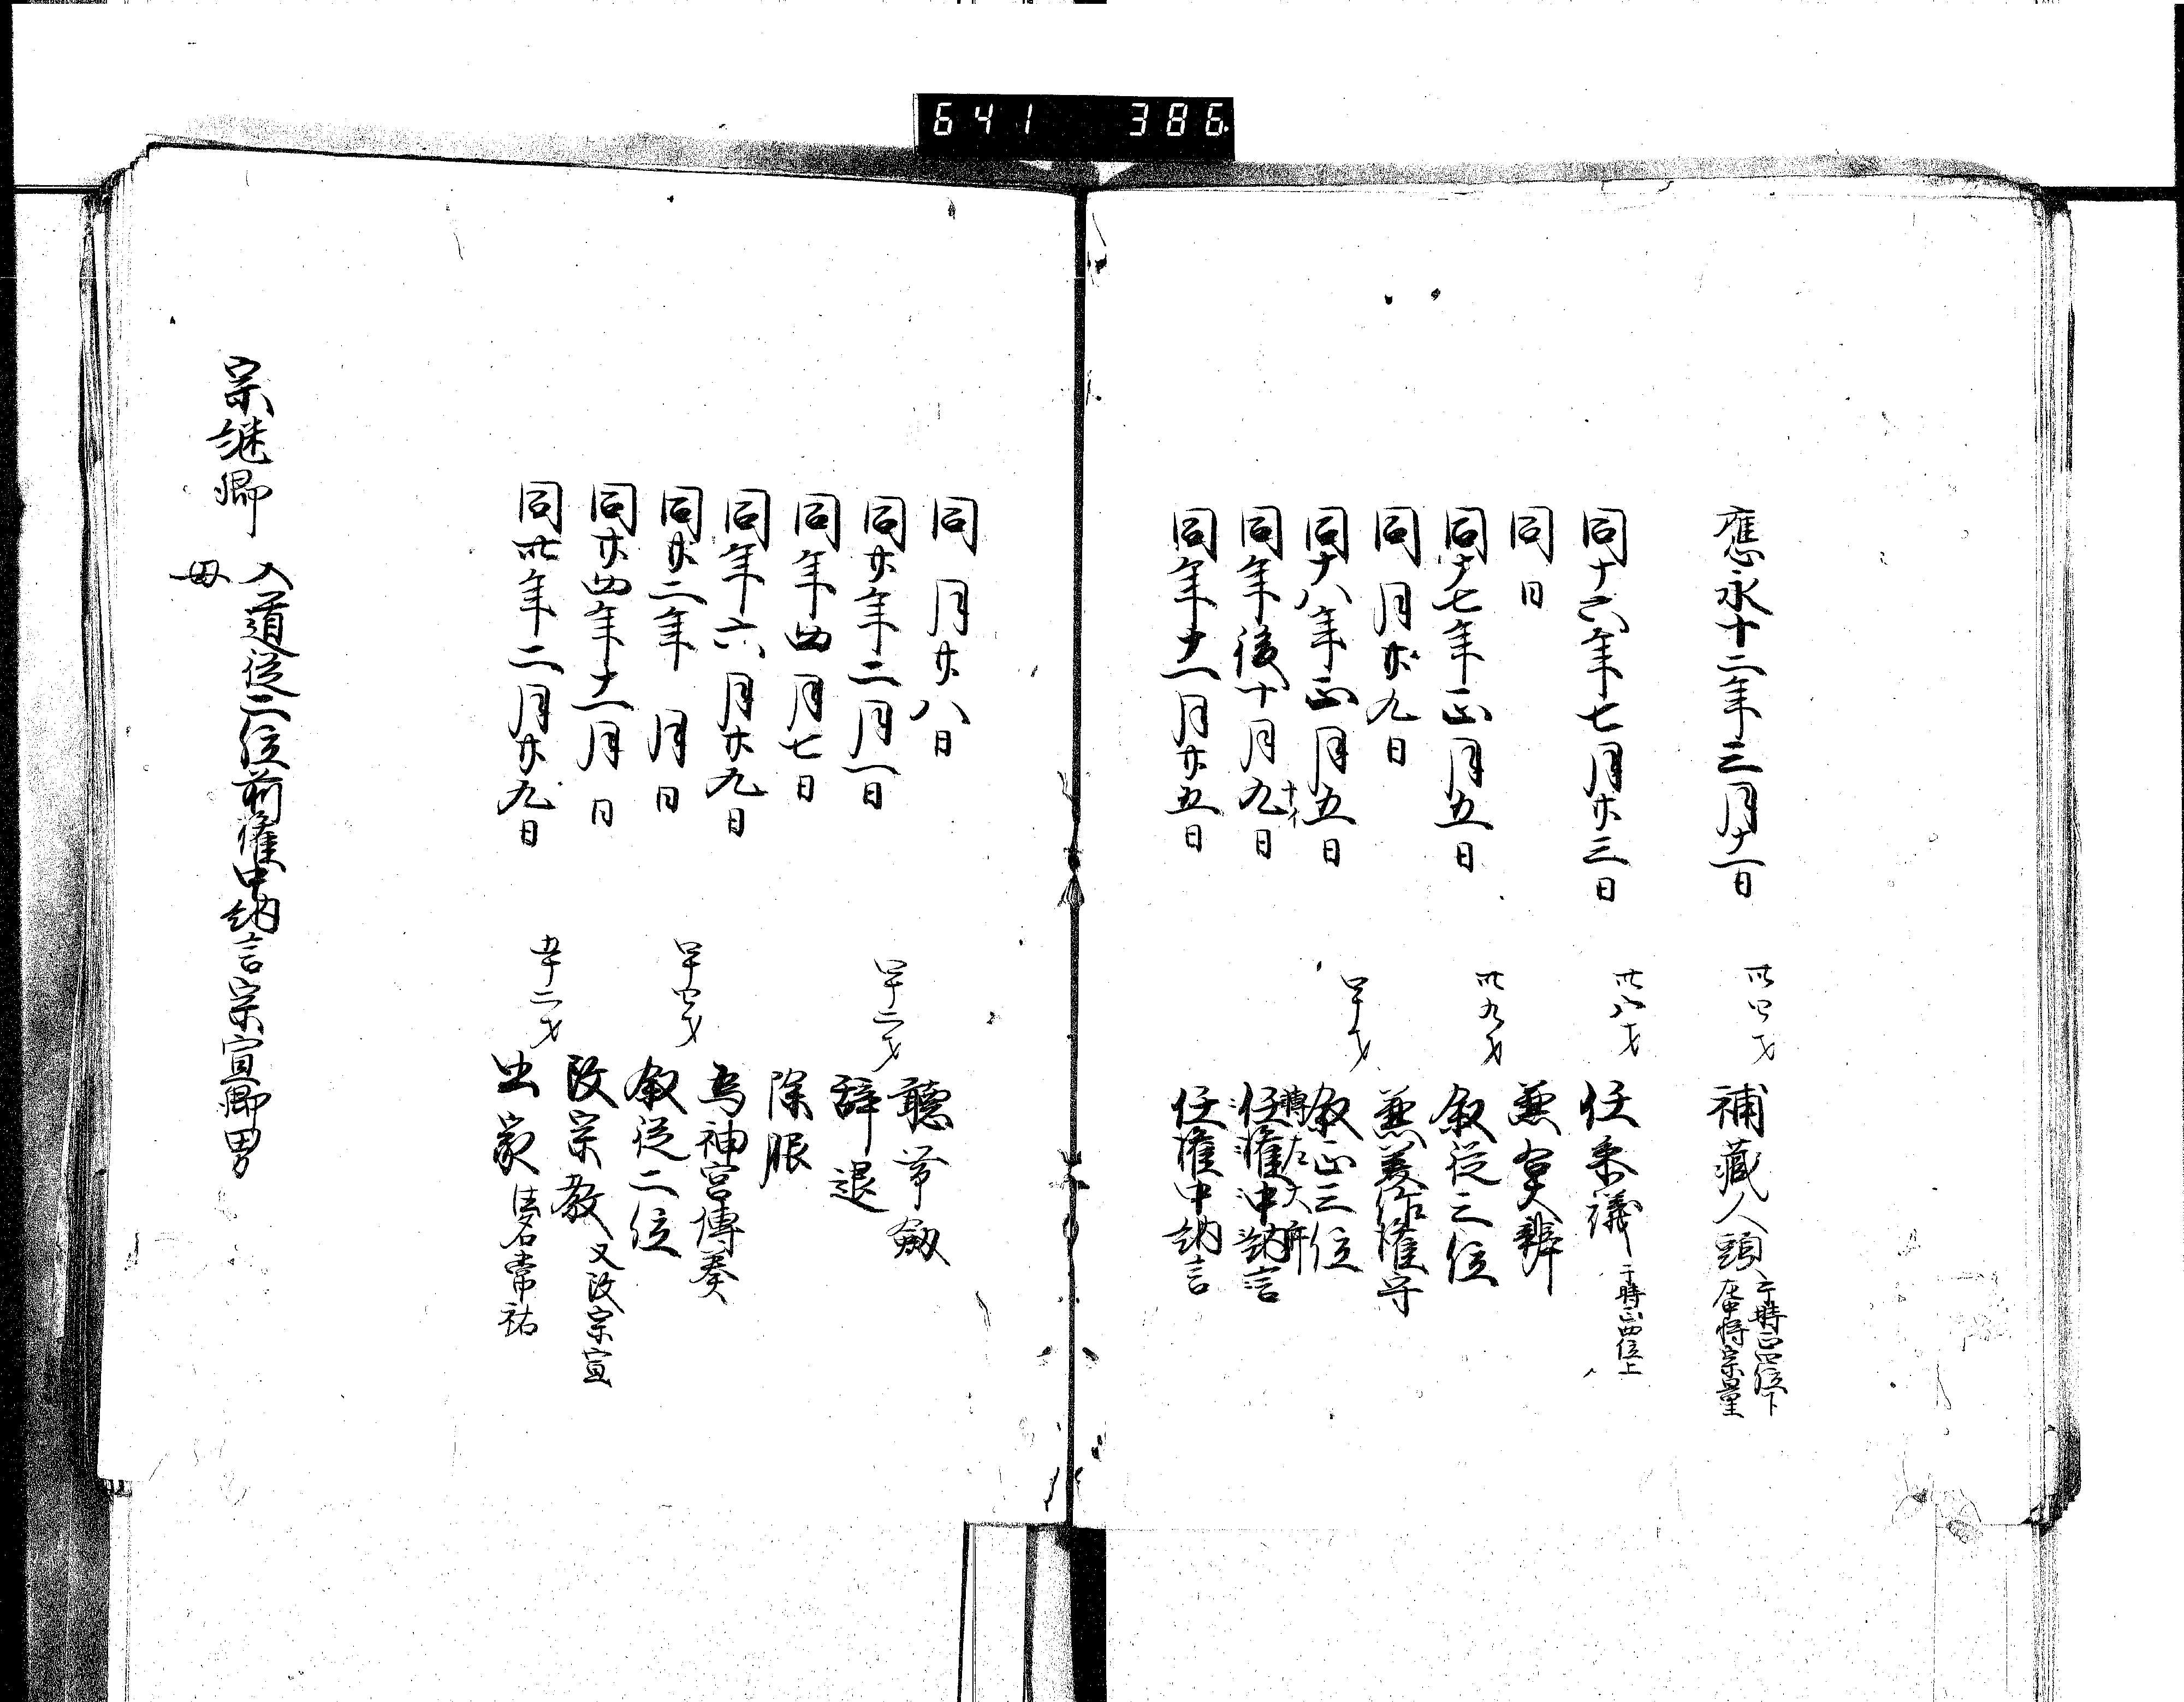 641 386
應永十二年三月十一日 卅四才 補蔵人頭 于時正四位下 左中将宗量
同十六年七月廿三日 卅八才 任参議 于時正四位上
同日 兼右大弁
同十七年正月五日 卅九才 叙従三位
同月廿九日 兼美作権守
同十八年正月五日 四十才 叙正三位
同年後十月九日 十イ 任権中納言 轉左大弁
同年十一月廿五日 任権中納言
同月廿八日 聴帯劔
同廿年二月一日 四十二才 辞退
同年四月七日 除服
同年六月廿九日 為神宮傳奏
同廿二年 月 日 四十四才 叙従二位
同廿四年十一月 日 改宗教 又改宗宣
同卅年二月廿九日 五十二才 出家 法名常祐
宗継卿 入道従二位前権中納言宗宣卿男
母